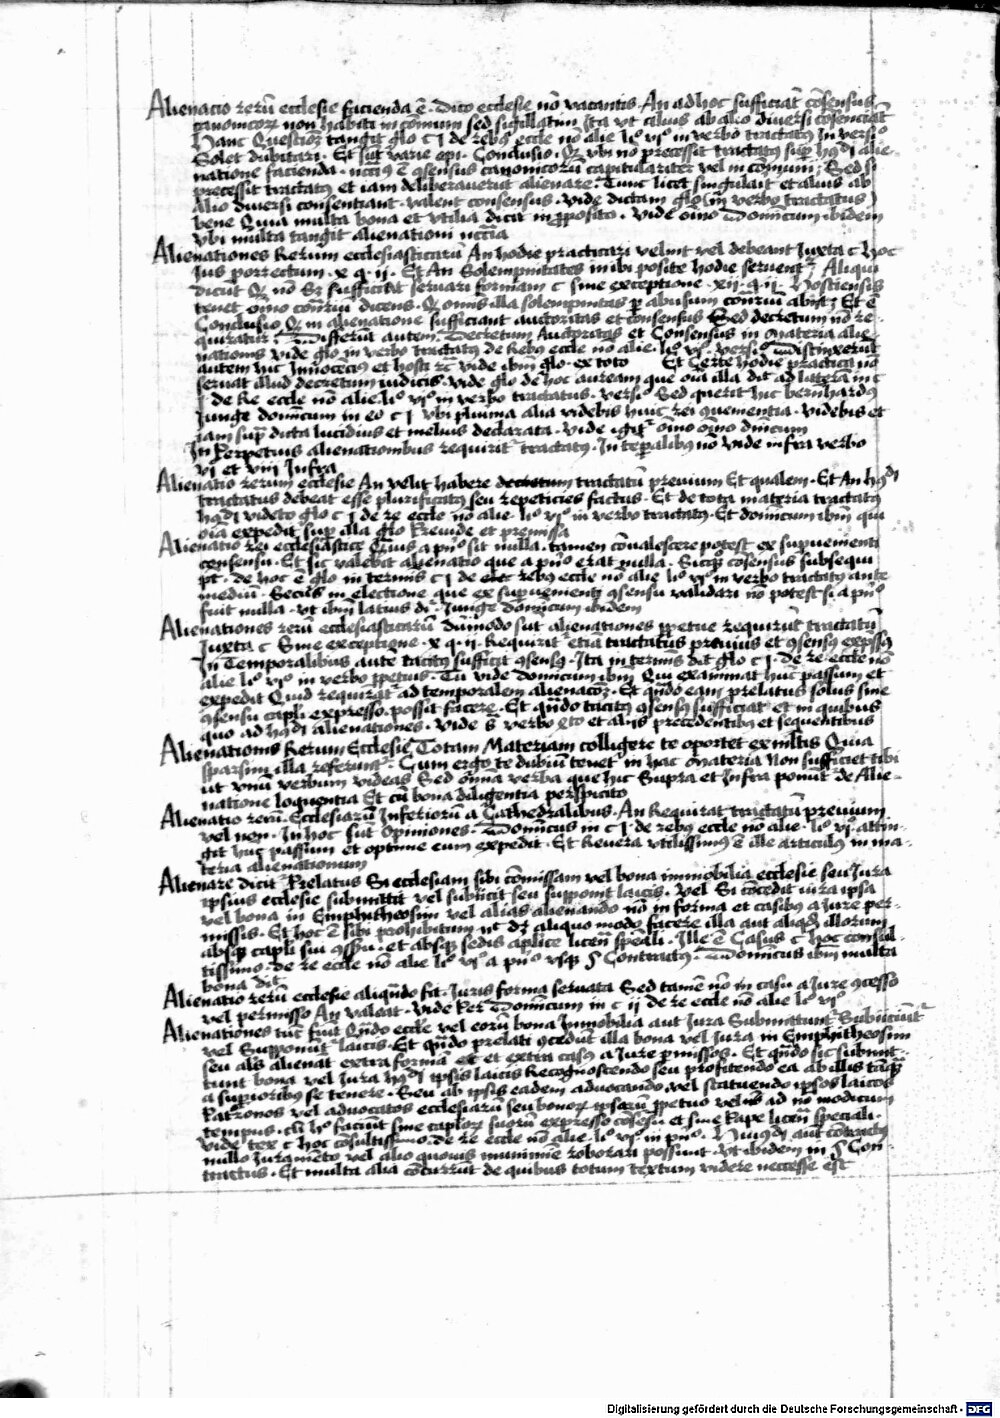 Alienacio rerū ecclesie facienda ē · Dico ecclesie nō vacantis · An ad hoc sufficiāt cōsensus
canonicoꝝ non habiti in cōmuni sed sigillatim Ita vt alius ab alio diuersi cōsenciāt
Hanc Questionē tangit glo c j de rebꝰ eccle nō alie li° vi° in verbo tractatꝰ In versi°
Solet dubitari · Et sūt varie opi · Conclusio · Qꝫ vbi nō precessit tractatꝰ sup hꝰdi alie-
natione facienda · nccīus ē ꝯsensus canonicorū capitulariter vel in cōmuni · Sed si
precessit tractatꝰ et iam deliberauerūt alienare · Tunc licet singulariter et alius ab
Alio diuersi consentiant · valent consensus · Vide dictam glo (in verbo tractatus)
bene Quia multa bona et vtilia dicit in ꝓposito · Vide oīno Dominicum ibidem
Vbi multa tangit alienationi nccīa
Alienationes Rerum ecclesiasticarū An hodie practicari velint vel debeant Juxta c hoc
Jus porrectum · x q · ij · Et An Solempnitates in ibi posite hodie seruentʳ · Aliqui
dicūt Qꝫ nō Sꝫ sufficiat seruari formam c sine exceptione · xij · q · ij · Hostiensis
tenet oīno cōtrariū dicens · Qꝫ omnis illa solempnitas ꝑ abusum cōtrariū abijt · Et ē
Conclusio Qꝫ in alienatione sufficiant Auctoritas et consensus Sed decretum nō re-
quiratur · Differūt autem · Decretum Auctoritas et Consensus in materia alie-
nationis vide glo in verbo tractatꝰ de Rebꝰ eccle nō alie · li° vi° · versi° Distinxerūt
autem hic Innocēcius et hosti ꝛc vide ibm̄ glo · ex toto Et Certe hodie practica nō
seruat illud decretum iudicis · vide glo de hoc auream que oīa illa dicit ad litterā in c
j de Re eccle nō alie li° vi° in verbo tractatus · versi° Sed querit hic bernhardus
Junge dominicum in eo c j vbi plurima alia videbis huic rei ꝯuenientia · Videbis et
iam supᵃ dicta lucidius et melius declarata · Vide igitʳ oīno oīno dnīcum
In Perpetuis alienationibus requiritʳ tractatꝰ · In temporalibꝰ nō vide infra verbo
vj et viij Infra
Alienatio rerum ecclesie An velit habere tractatū preuium Et qualem · Et An hꝰdi
tractatus debeat esse plurificatꝰ seu repeticies factus · Et de tota materia tractatꝰ
hꝰdi videto glo c j de re eccle nō alie li° vi° in verbo tractatꝰ · Et dominicum ibm̄ qui
oīa expedit sup illa glo Proinde et premissa
Alienatio rei ecclesiastice Cuius a pn° sit nulla · tamen cōualescere potest ex supuenienti
consensu · Et sic valebit alienatio que a pn° erat nulla · Sicqꝫ cōsensus subsequi
pt · de hoc ē glo in terminis c j de rebꝰ eccle nō alie li° vi° in verbo tractatꝰ ante
mediū · Secus in electione que ex supuenienti ꝯsensu validari nō potest si a pn°
fuit nulla · vt ibm̄ latius di · Junge dominicum ibidem
Alienationes rerū ecclesiasticarū dūmodo sint alienationes ꝑpetue requirūt tractatū
Juxta c Sine exceptione · x q · ij · Requiritʳ etiā tractatus preuius et ꝯsensꝰ expssꝰ
In Temporalibus autē tacitꝰ sufficit ꝯsensꝰ · Ita in terminis dicit glo c j · de re eccle nō
alie li° vi° in verbo ꝑpetuis · Tu vide dominicum ibm̄ Qui examinat hūc passum et
expedit Quid requiratʳ ad temporalem alienacōꝫ · Et qn̄do eam prelatus solus sine
ꝯsensu capli expresso · possit facere · Et qn̄do tacitꝰ ꝯsensꝰ sufficiat et in quibus
quo ad hꝰdi alienationes · Vide s̄ verbo ꝙto et alijs precedentibꝰ et sequentibus
Alienationis Rerum Ecclesie Totam Materiam colligere te oportet ex mltis Quia
sparsim illa referuntʳ · Cum ergo te dubiū tenet in hac materia Non sufficiet tibi
vt vnū verbum videas Sed omnia verba que hic Supra et Infra ponūt de Alie-
natione loquentia Et cū bona diligentia perspicito
Alienatio rerū · Ecclesiarū Inferiorū a Cathedralibus · An Requirat tractatū preuium
vel non · In hoc sūt Opiniones · Dominicus in c j · de rebꝰ eccle nō alie · li° vi° · attin-
git hūc passum et optime eum expedit · Et Reuera vtilissimꝰ ē ille articulꝰ in ma-
teria alienationum
Alienare dicitʳ Prelatus Si ecclesiam sibi cōmissam vel bona immobilia ecclesie seu Jura
ipsius ecclesie submittit vel subiicit seu supponit laicis · Vel Si cōcedit iura ipsa
vel bona in Emphitheosim vel alias alienando nō in forma et casibꝰ a Jure per-
missis · Et hoc ē sibi prohibitum nc dꝫ aliquo modo facere illa aut aliqd illorum
absqꝫ capli sui ꝯssu · et absqꝫ sedis aplice licen spēali · Ille ē Casus c hoc consul-
tissimo · de re eccle nō alie li° vi° a pn° vsqꝫ § Contractꝰ · Dominicus ibm̄ multa
bona dicit
Alienatio rerū ecclesie aliqn̄do fit · Juris forma seruata Sed tamē nō in casu a Jure ꝯcesso
vel permisso An valeat · vide per Dominicum in c ij de re eccle nō alie li° vi°
Alienationes tūc fiūt Qn̄do eccle vel eorū bona Immobilia aut Jura Submittuntʳ Subiiciūtʳ
vel Supponūtʳ laicis · Et qn̄do prelati ꝯcedūt illa bona vel Jura in Emphitheosim
seu alias alienāt extra formā et extra casꝰ a Jure ꝑmissos · Et qn̄do sic submit-
tunt bona vel Jura hꝰdi ipsis laicis Recognoscendo seu profitendo ea ab illis tāqꝫ
a supioribus se tenere · Seu ab ipsis eadem aduocando vel statuendo ipsos laicos
Patronos vel aduocatos ecclesiarū seu bonoꝝ ipsarū ꝑpetuo vel ad nō modicum
tempus · faciūt sine caploꝝ suorū expresso cōsensu et sine Pape licen speciali ·
Vide tex c hoc cōsultissimo de re eccle nō alie · li° vi° in pn° · Huiꝰdi aūt cōtractꝰ
nullo Juramēto vel alio quouis munimine roborari possunt · Vt ibidem in § Con-
tractus · Et multa alia cōcurrūt de quibus totum textum videre neccesse est
Digitalisierung gefördert durch die Deutsche Forschungsgemeinschaft - DFG